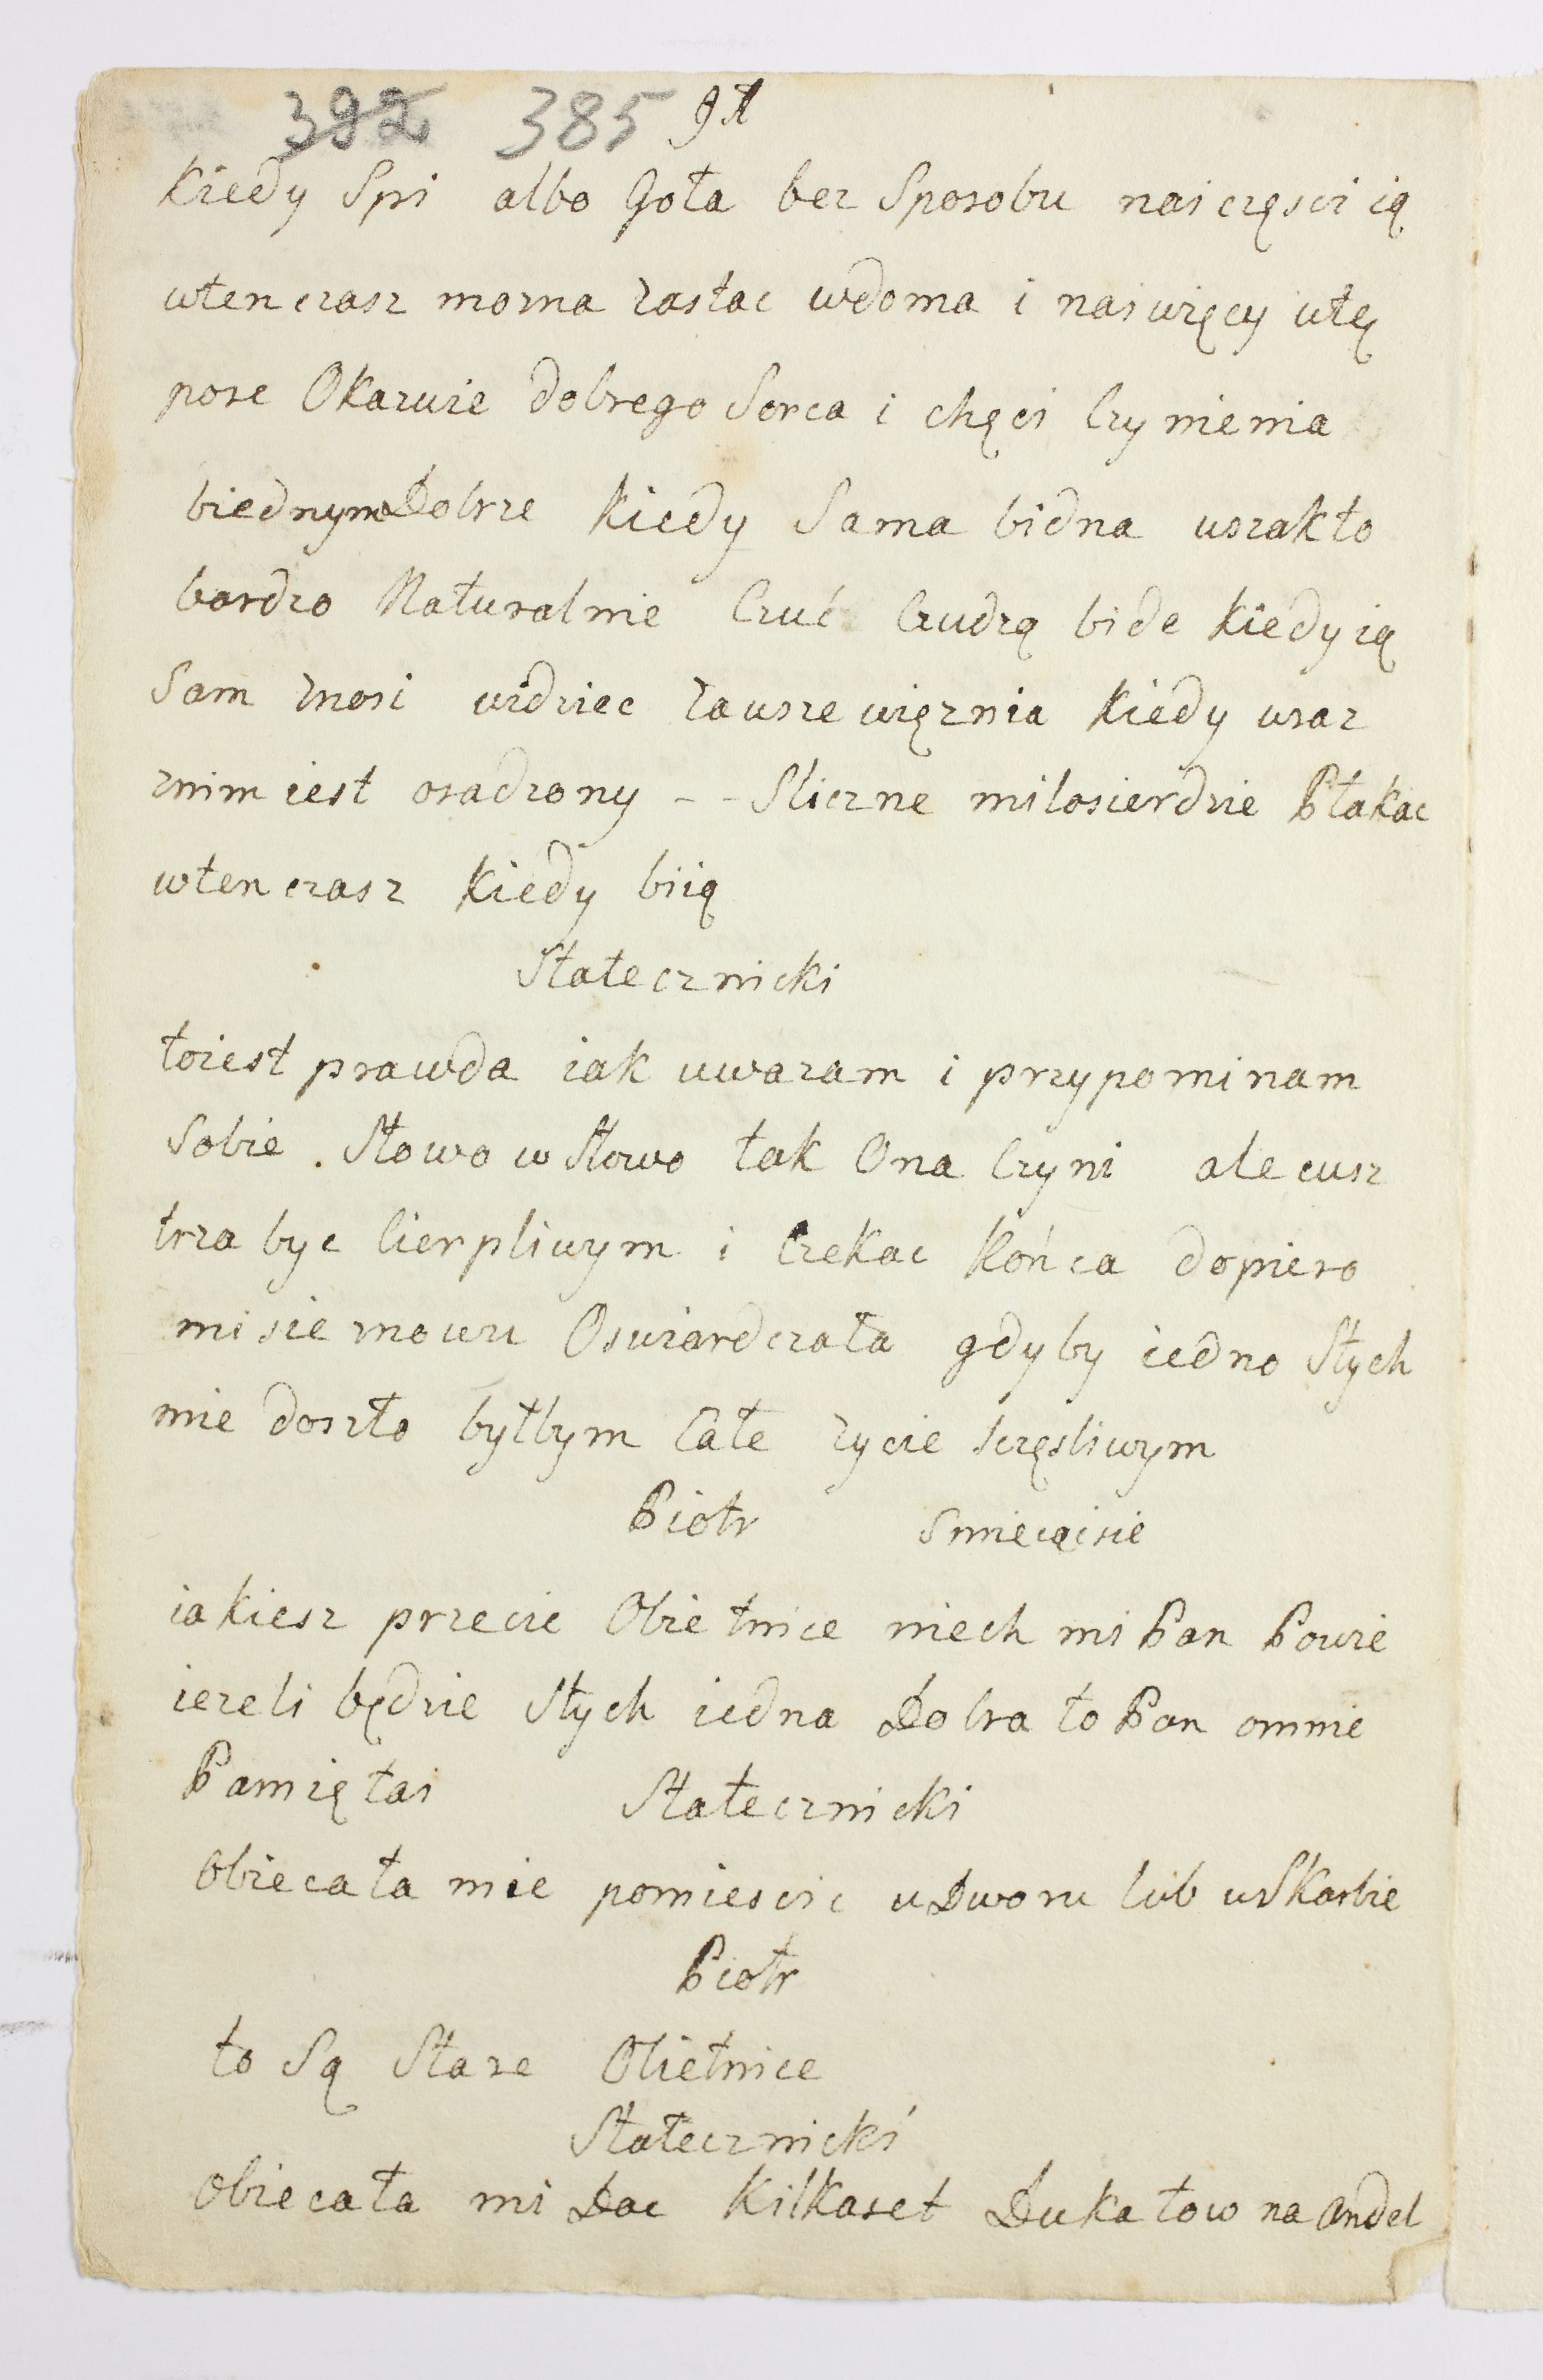 392 385 91
kiedy Spi albo Goła bez Sposobu naiczęsci ią
wtenczasz mozna zastac wdoma i naiwięcy wtę
pore Okazuie dobrego Serca i chęci Czynienia
biednym Dobrze kiedy Sama bidna wszakto
bardzo Naturalnie Czuć Czudzą bide kiedy ią
Sam znosi widziec zawsze więznia kiedy wraz
znim iest osadzony - - Sliczne milosierdzie Płakac
wtenczasz kiedy biią
Statecznicki
toiest prawda iak uwazam i przypominam
Sobie . Słowo w Słowo tak Ona Czyni ale cusz
trza byc Cierpliwym i Czekac końca dopiero
misie znowu Oswiardczała gdyby iedno Stych
mie doszło byłbym Całe zycie sczęsliwym
Piotr Smieiąćsie
iakiesz przecie Obietnice niech mi Pan Powie
iezeli będzie Stych iedna Dobra to Pan omnie
Pamiętai Statecznicki
Obiecała mie pomiescic uDworu lub wSkarbie
Piotr
to Są Stare Obietnice
Statecznicki
Obiecała mi Dac kilkaset Dukatow na Andel